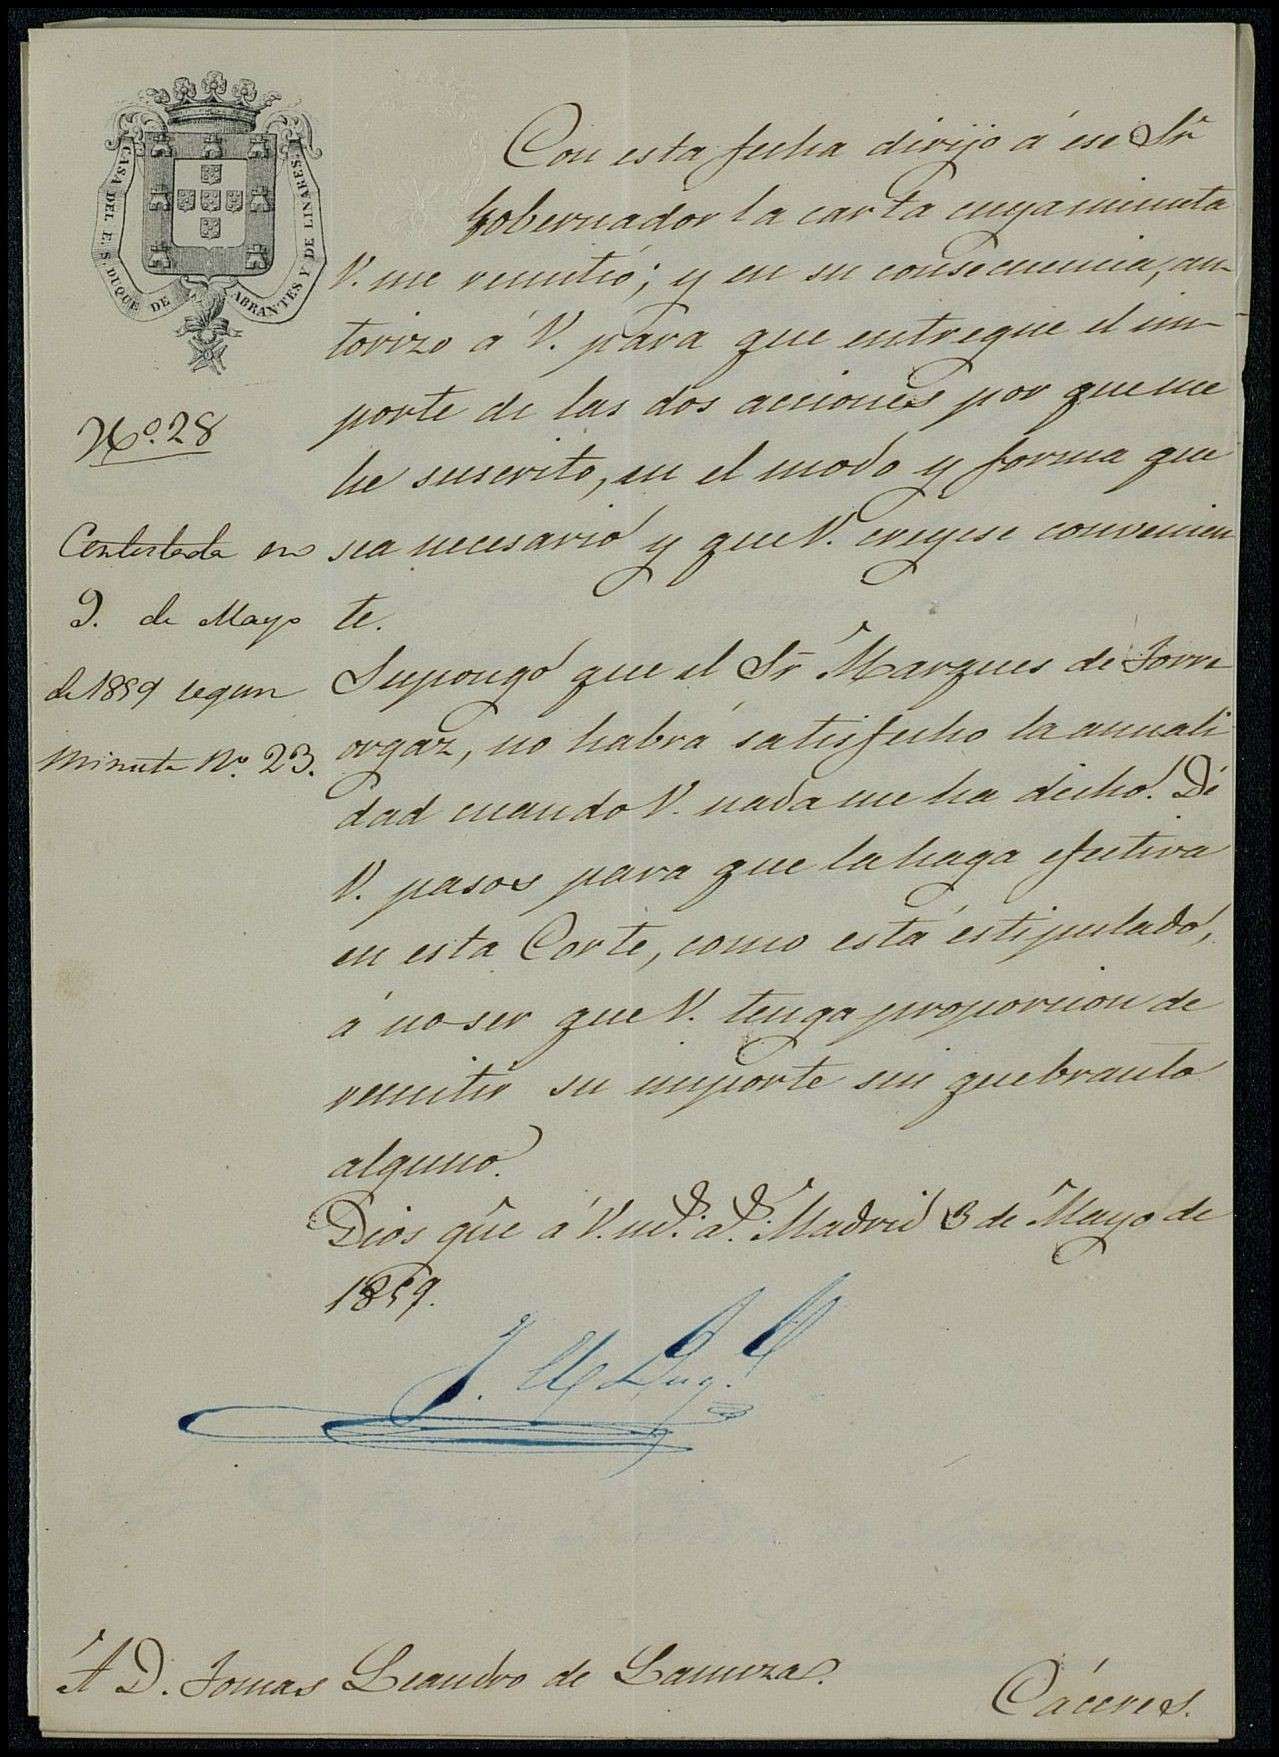 CASA DEL E. S. DUQUE DE ABRANTES Y DE LINARES.
Nº. 28
Contestada en
9. de Mayo
de 1859 segun
minuta Nº. 23.
Con esta fecha dirijo á ese Sr
Gobernador la carta cuya minuta
V. me remitió; y en su consecuencia, au-
torizo á V. para que entregue el im-
porte de las dos acciones por que me
he suscrito, en el modo y forma que
sea necesario y que V. creyese convenien
te.
Supongo que el Sr Marques de Torre
orgaz, no habrá satisfecho la anuali
dad cuando V. nada me ha dicho. Dé
V. pasos para que la haga efectiva
en esta Corte, como está estipulado,
á no ser que V. tenga proporcion de
remitir su importe sin quebranto
alguno.
Dios gũe á V. ms. as. Madrid 3 de Mayo de
1859.
A D. Tomas Leandro de Lamuza.
Cáceres.